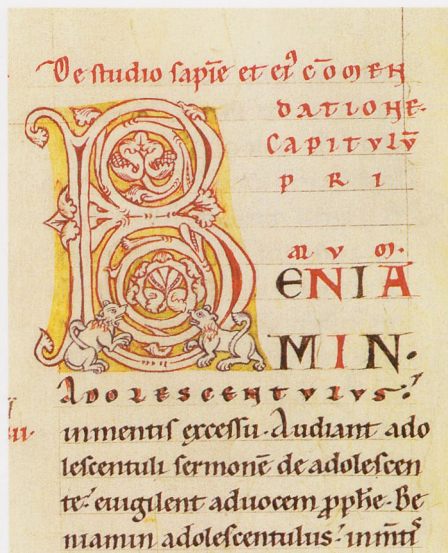 De studio sapīe et eiꝰ cōmen
datione.
Capitulū
pri
mum.
BENIA
MIN.
Adolescentulus:
in mentis excessu. Audiant ado
lescentuli sermonē de adolescen
te: euigilent ad uocem ꝓphe. Be
niamin adolescentulus: in mtis